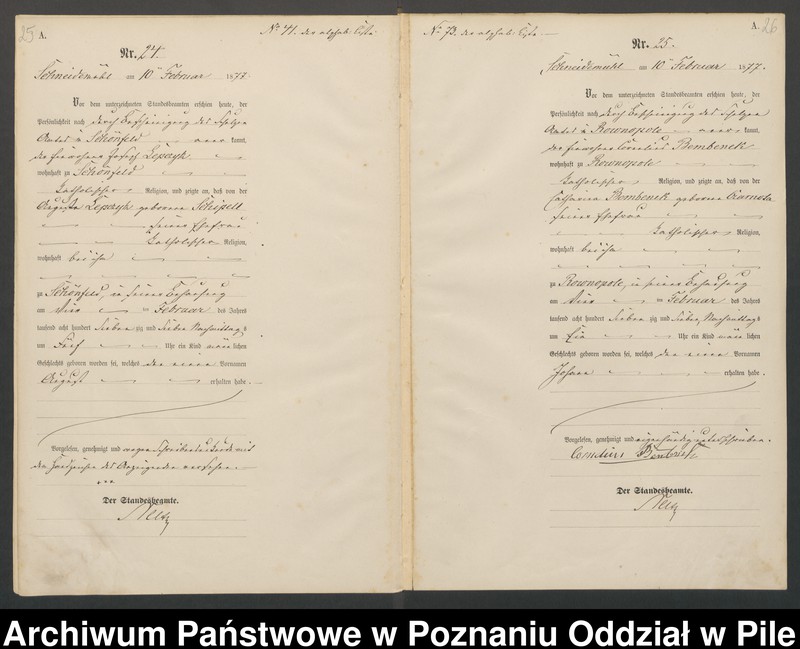 25 A.
No 71. der alphab. Liste
Nr. 24.
Schneidemühl am 10ten Februar 1877
Vor dem unterzeichneten Standesbeamten erschien heute, der
Persönlichkeit nach durch Bescheinigung des Schulzen
Amtes in Schönfeld kannt,
der Einwohner Joseph Lepczyk
wohnhaft zu Schönfeld
katholischer Religion, und zeigte an, daß von der
Augusta Lepczyk geborene
seiner Ehefrau
katholischer Religion,
wohnhaft bei ihm
zu Schönfeld, in seiner Behausung
am Februar des Jahres
tausend acht hundert sieben zig und sieben Nachmittags
um fünf Uhr ein Kind männlichen
Geschlechts geboren worden sei, welches den einen Vornamen
August erhalten habe.
Vorgelesen, genehmigt und wegen Schreibensunkunde mit
den Handzeichen des Anzeigenden versehen.
+++
Der Standesbeamte.
No 73. der alphab. Liste
A. 26
Nr. 25.
Schneidemühl am 10ten Februar 1877.
Vor dem unterzeichneten Standesbeamten erschien heute, der
Persönlichkeit nach durch Bescheinigung des Schulzen
Amtes in Rownopole kannt,
der Einwohner Cornelius Bembenek
wohnhaft zu Rownopole
katholischer Religion, und zeigte an, daß von der
Catharina Bembenek geborene
seiner Ehefrau
katholischer Religion,
wohnhaft bei ihm
zu Rownopole, in seiner Behausung
am Februar des Jahres
tausend acht hundert sieben zig und sieben, Nachmittags
um Ein Uhr ein Kind männlichen
Geschlechts geboren worden sei, welches den einen Vornamen
Johann erhalten habe.
Vorgelesen, genehmigt und eigenhändig unterschrieben.
Cornelius
Der Standesbeamte.
Archiwum Państwowe w Poznaniu Oddział w Pile